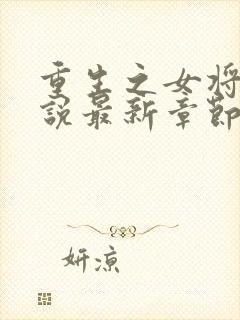 重生之女将
说最新章节
妍凉